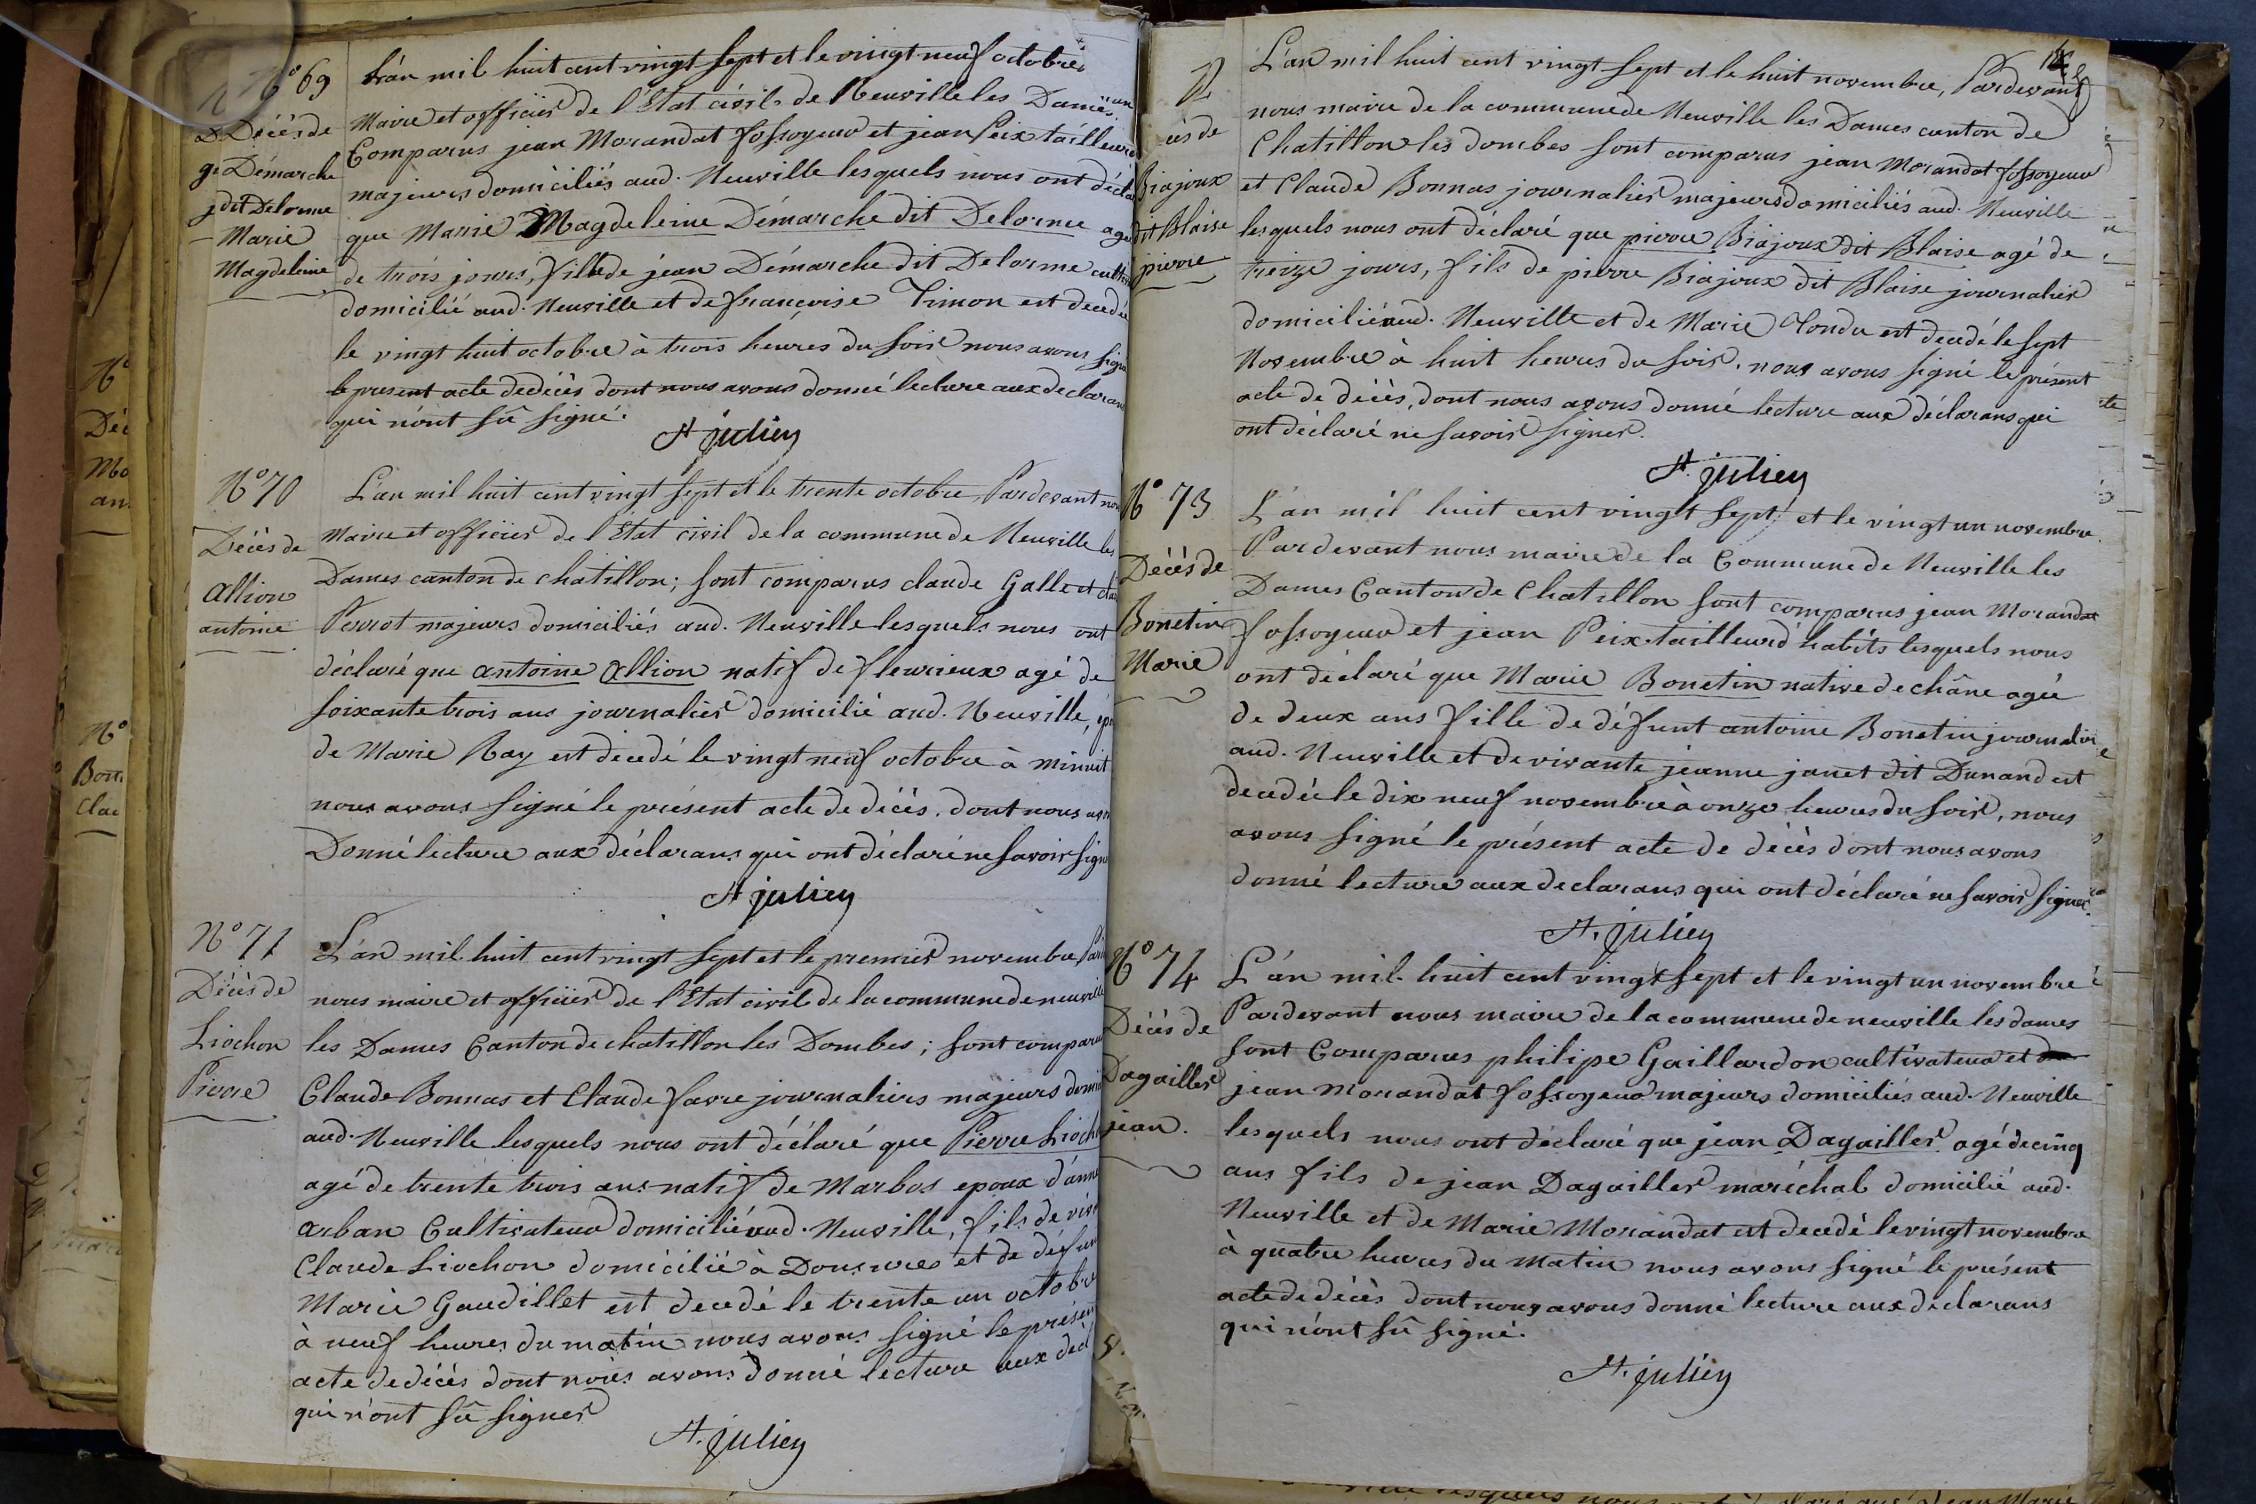 N° 69
Décès de
Démarche
dit Delorme
Marie
Magdeleine
L'an mil huit cent vingt sept et le vingt neuf octobre
Maire et officier de l'Etat civil de Neuville les Dames
Comparus jean Morandat fossoyeur et jean Peix tailleur
majeurs domiciliés aud. Neuville lesquels nous ont décla
que Marie Magdeleine Démarche dit Delorme agé
de trois jours, fille de jean Démarche dit Delorme cultiv
domicilié aud. Neuville et de françoise Timon est decedé
le vingt huit octobre à trois heures du soir nous avons sign
le present acte de décès dont nous avons donné lecture aux declaran
qui n'ont sû signé.
St julien
N° 70
Décès de
Allion
antoine
L'an mil huit cent vingt sept et le trente octobre, Pardevant nou
Maire et officier de l'Etat civil de la commune de Neuville les
Dames canton de chatillon; sont comparus claude Galle et cla
Perrot majeurs domiciliés aud. Neuville lesquels nous ont
déclaré que antoine Allion natif de fleurieux agé de
soixante trois ans journalier domicilié aud. Neuville, ép
de Marie Ray est décedé le vingt neuf octobre à minuit
nous avons signé le présent acte de décès. dont nous avo
Donné lecture aux déclarans qui ont déclaré ne savoir sign
St julien
N° 71
Décès de
Liochon
Pierre
L'an mil huit cent vingt sept et le premier novembre, Par
nous maire et officier de l'Etat civil de la commune de neuville
les Dames Canton de chatillon les Dombes; sont comparu
Claude Bonnas et Claude favre journaliers majeurs domi
aud. Neuville lesquels nous ont déclaré que Pierre Lioch
agé de trente trois ans natif de Marbos epoux d'anne
arban Cultivateur domicilié aud. Neuville, fils de viv
Claude Liochon domicilié à Dousvres et de défun
Marie Gaudillet est decedé le trente un octobre
à neuf heures du matin nous avons signé le présen
acte de décès dont nous avons donné lecture aux décl
qui n'ont sû signer
St. julien
ès de
Biajoux
dit Blaise
pierre
L'an mil huit cent vingt sept et le huit novembre, Pardevant
nous maire de la commune de Neuville les Dames canton de
Chatillon les dombes sont comparus jean Morandat fossoyeur
et Claude Bonnas journalier majeurs domiciliés aud. Neuville
lesquels nous ont déclaré que pierre Biajoux dit Blaise agé de
treize jours, fils de pierre Biajoux dit Blaise journalier
domicilié aud. Neuville et de Marie Tondu est decedé le sept
Novembre à huit heures du soir. nous avons signé le présent
acte de décès, dont nous avons donné lecture aux déclarans qui
ont déclaré ne savoir signer.
St. julien
N° 73
Décès de
Bonetin
Marie
L'an mil huit cent vingt sept et le vingt un novembre.
Pardevant nous maire de la Commune de Neuville les
Dames Canton de Chatillon sont comparus jean Morandat
fossoyeur et jean Peix tailleur d'habits lesquels nous
ont déclaré que Marie Bonetin native de châne agée
de deux ans fille de défunt antoine Bonetin journalier
aud. Neuville et de vivante jeanne janet dit Dunand est
decedée le dix neuf novembre à onze heures du soir, nous
avons signé le présent acte de décès dont nous avons
donné lecture aux declarans qui ont déclaré ne savoir signer.
St. julien
N° 74
Décès de
Dagailler
jean.
L'an mil huit cent vingt sept et le vingt un novembre
Pardevant nous maire de la commune de neuville les dames
sont Comparus philipe Gaillardon cultivateur et
jean Morandat fossoyeur majeurs domiciliés aud. Neuville
lesquels nous ont déclaré que jean Dagailler agé de cinq
ans fils de jean Dagailler maréchal domicilié aud.
Neuville et de Marie Morandat est decedé le vingt novembre
à quatre heures du matin nous avons signé le présent
acte de décès dont nous avons donné lecture aux declarans
qui n'ont sû signé.
St. julien